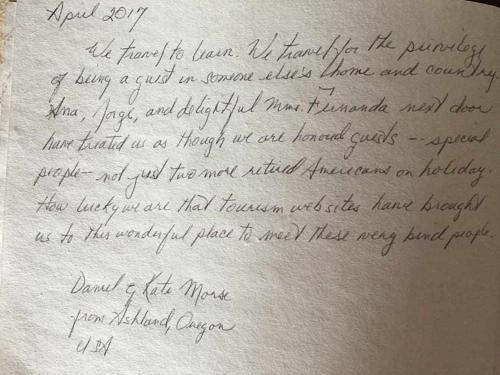 April 2017
We travel to learn. We travel for the privilege
of being a guest in someone else's home and country.
Ana, Jorge, and delightful Mrs. Fernanda next door
have treated us as though we are honored guests -- special
people -- not just two more retired Americans on holiday.
How lucky we are that tourism websites have brought
us to this wonderful place to meet these very kind people.
Daniel & Kate Morse
from Ashland, Oregon
USA